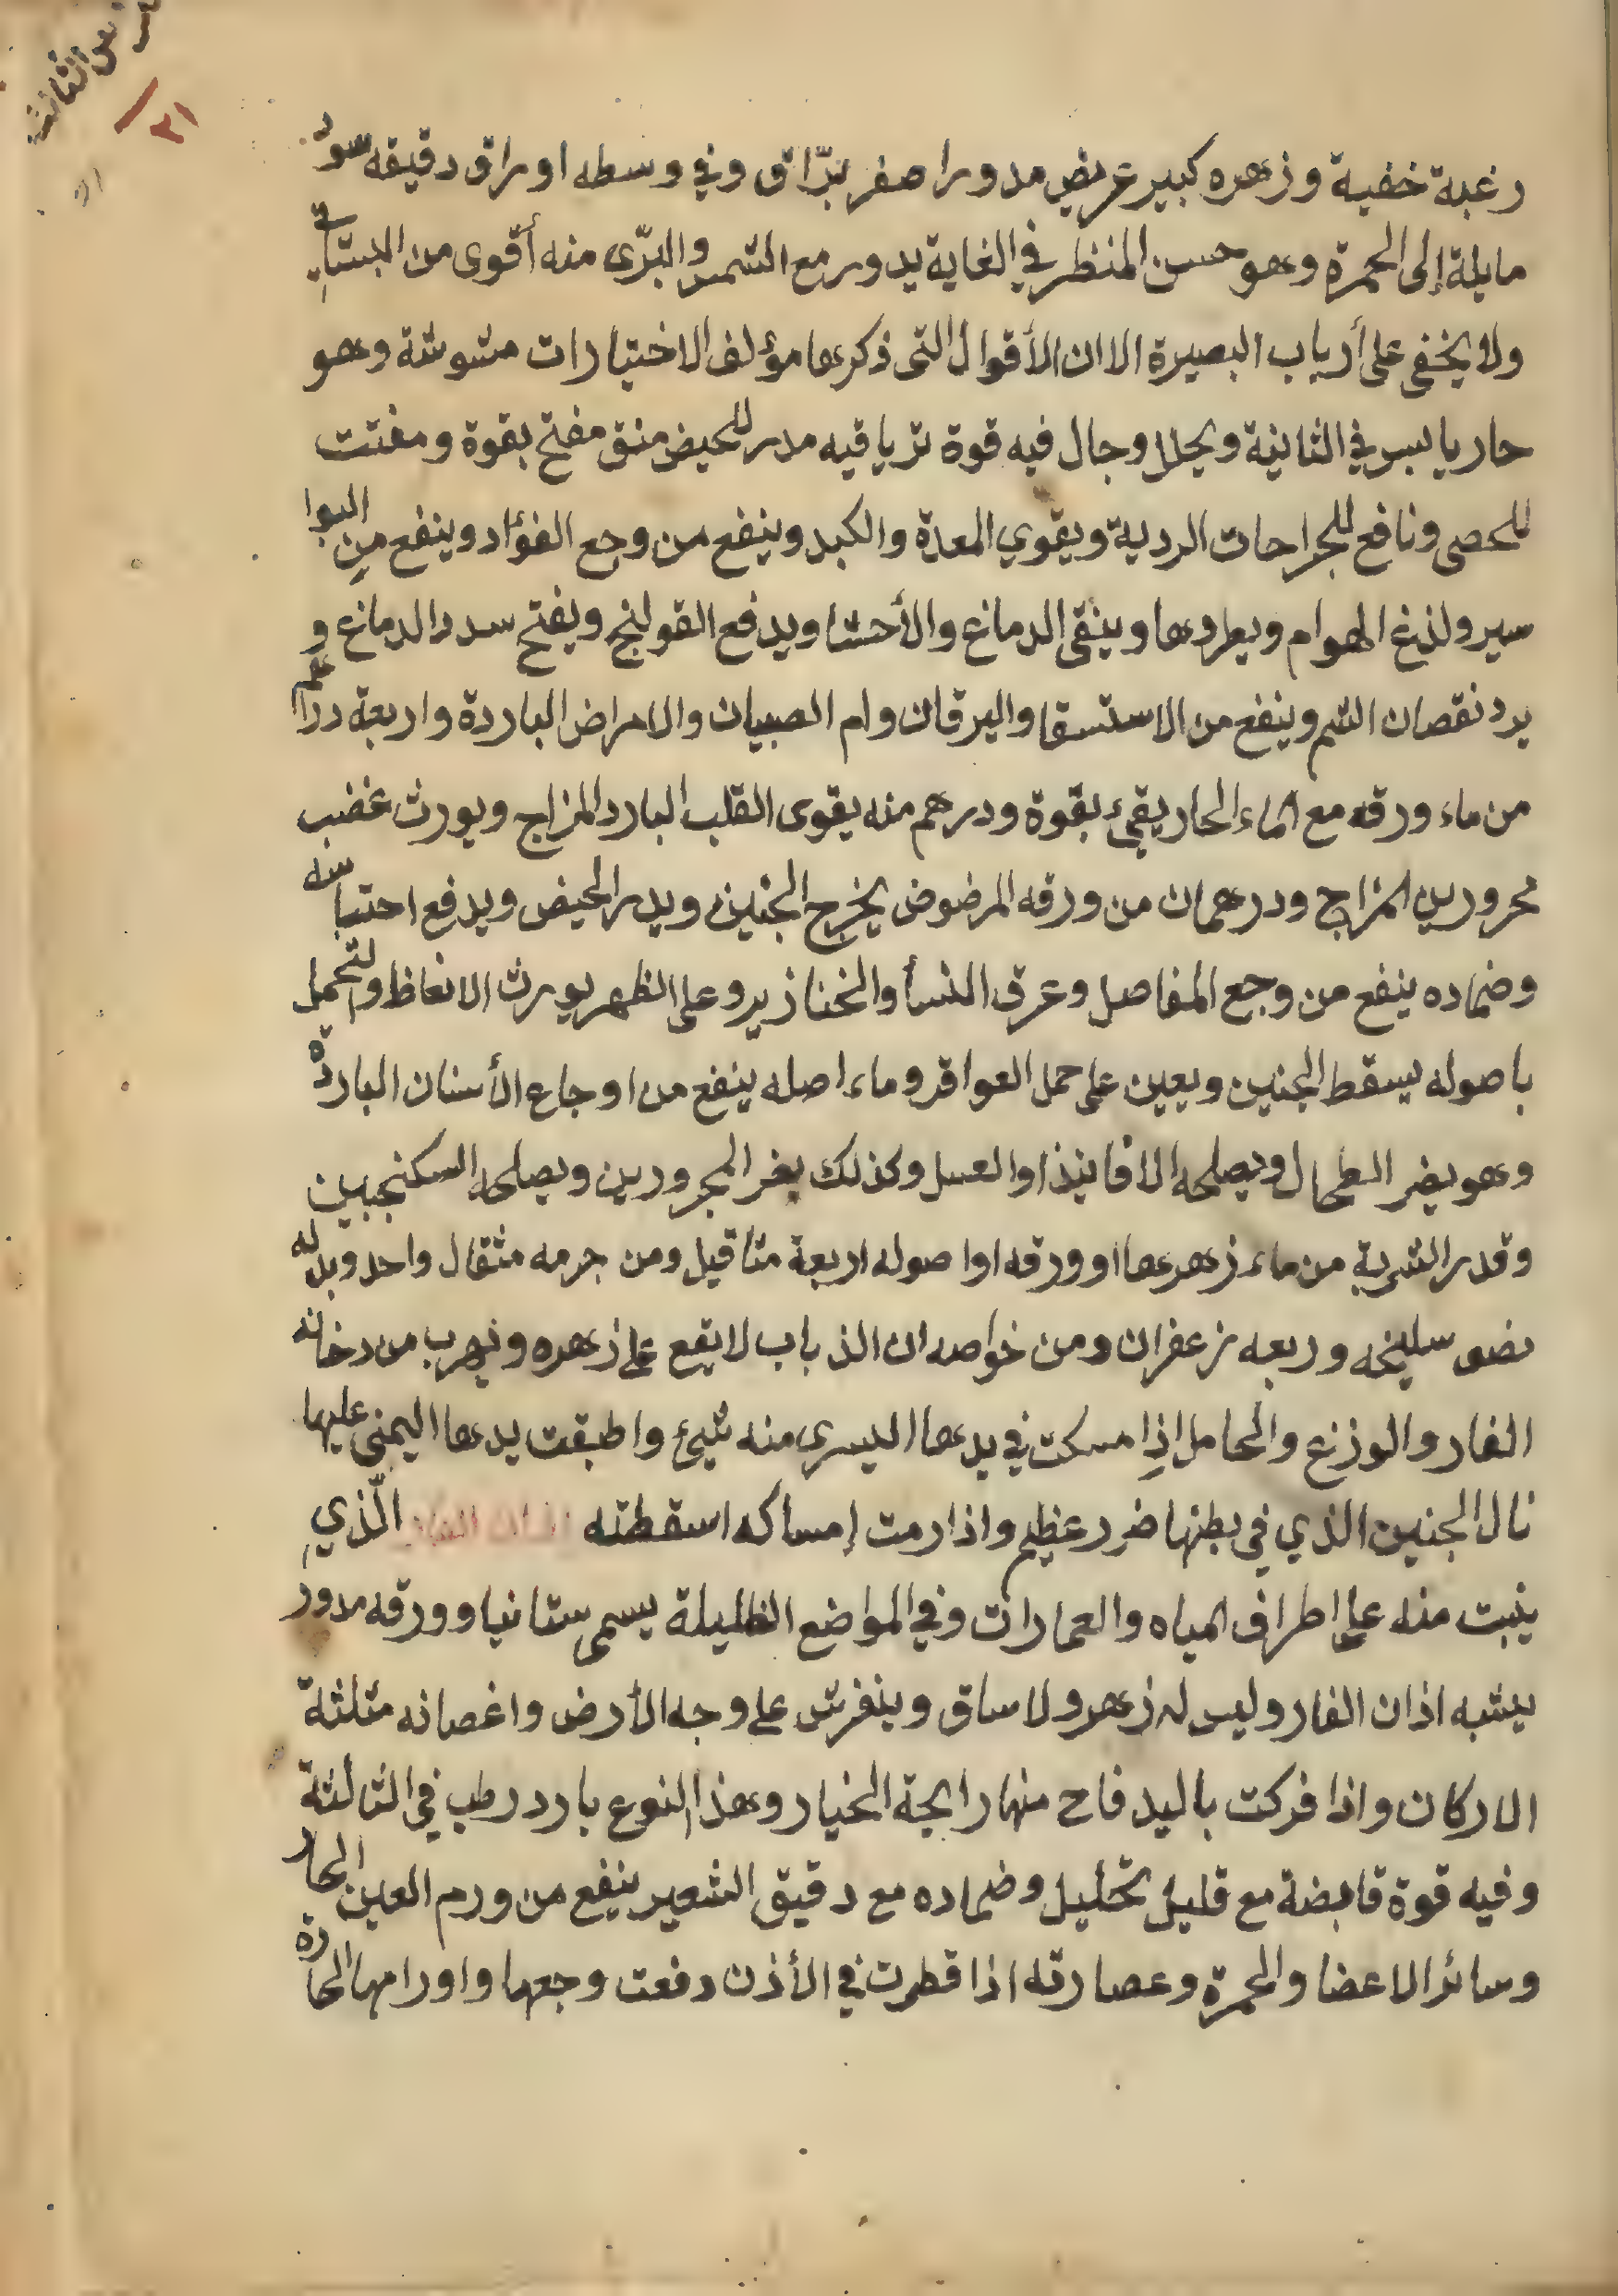 س الثالث
٢١
رغبة خفية وزهره كبير عريض مدور اصفر برّاق وفي وسطه اوراق دقيقه سود
مايلة إلى الحمرة وهو حسن المنظر في الغاية يدور مع الشمس والبرّى منه أقوى من البستاني
ولا يخفى على أرباب البصيرة الا ان الأقوال التى ذكرها مؤلف الاختيارات مشوشة وهو
حار يابس في الثانية ويحلل وجال فيه قوة ترياقيه مدر للحيض منق مفتح بقوة ومفتت
للحصى ونافع للجراحات الردية ويقوي المعدة والكبد وينفع من وجع الفؤاد وينفع من البوا
سير ولذغ الهوام ويطردها وينقى الدماغ والأحشا ويدفع القولنج ويفتح سدد الدماغ و
يرد نقصان الشم وينفع من الاستسقا واليرقان وام الصبيان والامراض الباردة واربعة دراهم
من ماء ورقه مع الماء الحار يقيء بقوة ودرهم منه يقوى القلب البارد المزاج ويورث غضب
محرورين المزاج ودرهمان من ورقه المرضوض يخرج الجنين ويدر الحيض ويدفع احتباسه
وضماده ينفع من وجع المفاصل وعرق النسأ والخنازير وعلى الظهر يورث الانعاظ والتحمل
باصوله يسقط الجنين ويعين على حمل العواقر وماء اصله ينفع من اوجاع الأسنان الباردة
وهو يضر الطحال ويصلحه الافانيذ او العسل وكذلك يضر المحرورين ويصلحه السكنجبين
وقدر الشربة من ماء زهرها او ورقه او اصوله اربعة مثاقيل ومن جرمه مثقال واحد وبدله
نصف سليخه وربعه زعفران ومن خواصه ان الذباب لا يقع على زهره ويهرب من دخانه
الفار والوزغ والحامل اذا مسكت في يدها اليسرى منه شيئ واطبقت يدها اليمنى عليها
نال الجنين الذي في بطنها ضرر عظيم واذا رمت إمساكه اسقطته اذان الفار الّذي
ينبت منه على اطراف المياه والعمارات وفي المواضع الظليلة يسمى ستانيا وورقه مدور
يشبه اذان الفار وليس له زهر ولا ساق وينفرش على وجه الأرض واغصانه مثلثة
الاركان واذا فركت باليد فاح منها رايحة الخيار وهذا النوع بارد رطب في الثالثة
وفيه قوة قابضة مع قليل تحليل وضماده مع دقيق الشعير ينفع من ورم العين الحار
وسائر الاعضا والحمرة وعصارته اذا قطرت في الأذن دفعت وجعها واورامها الحارة